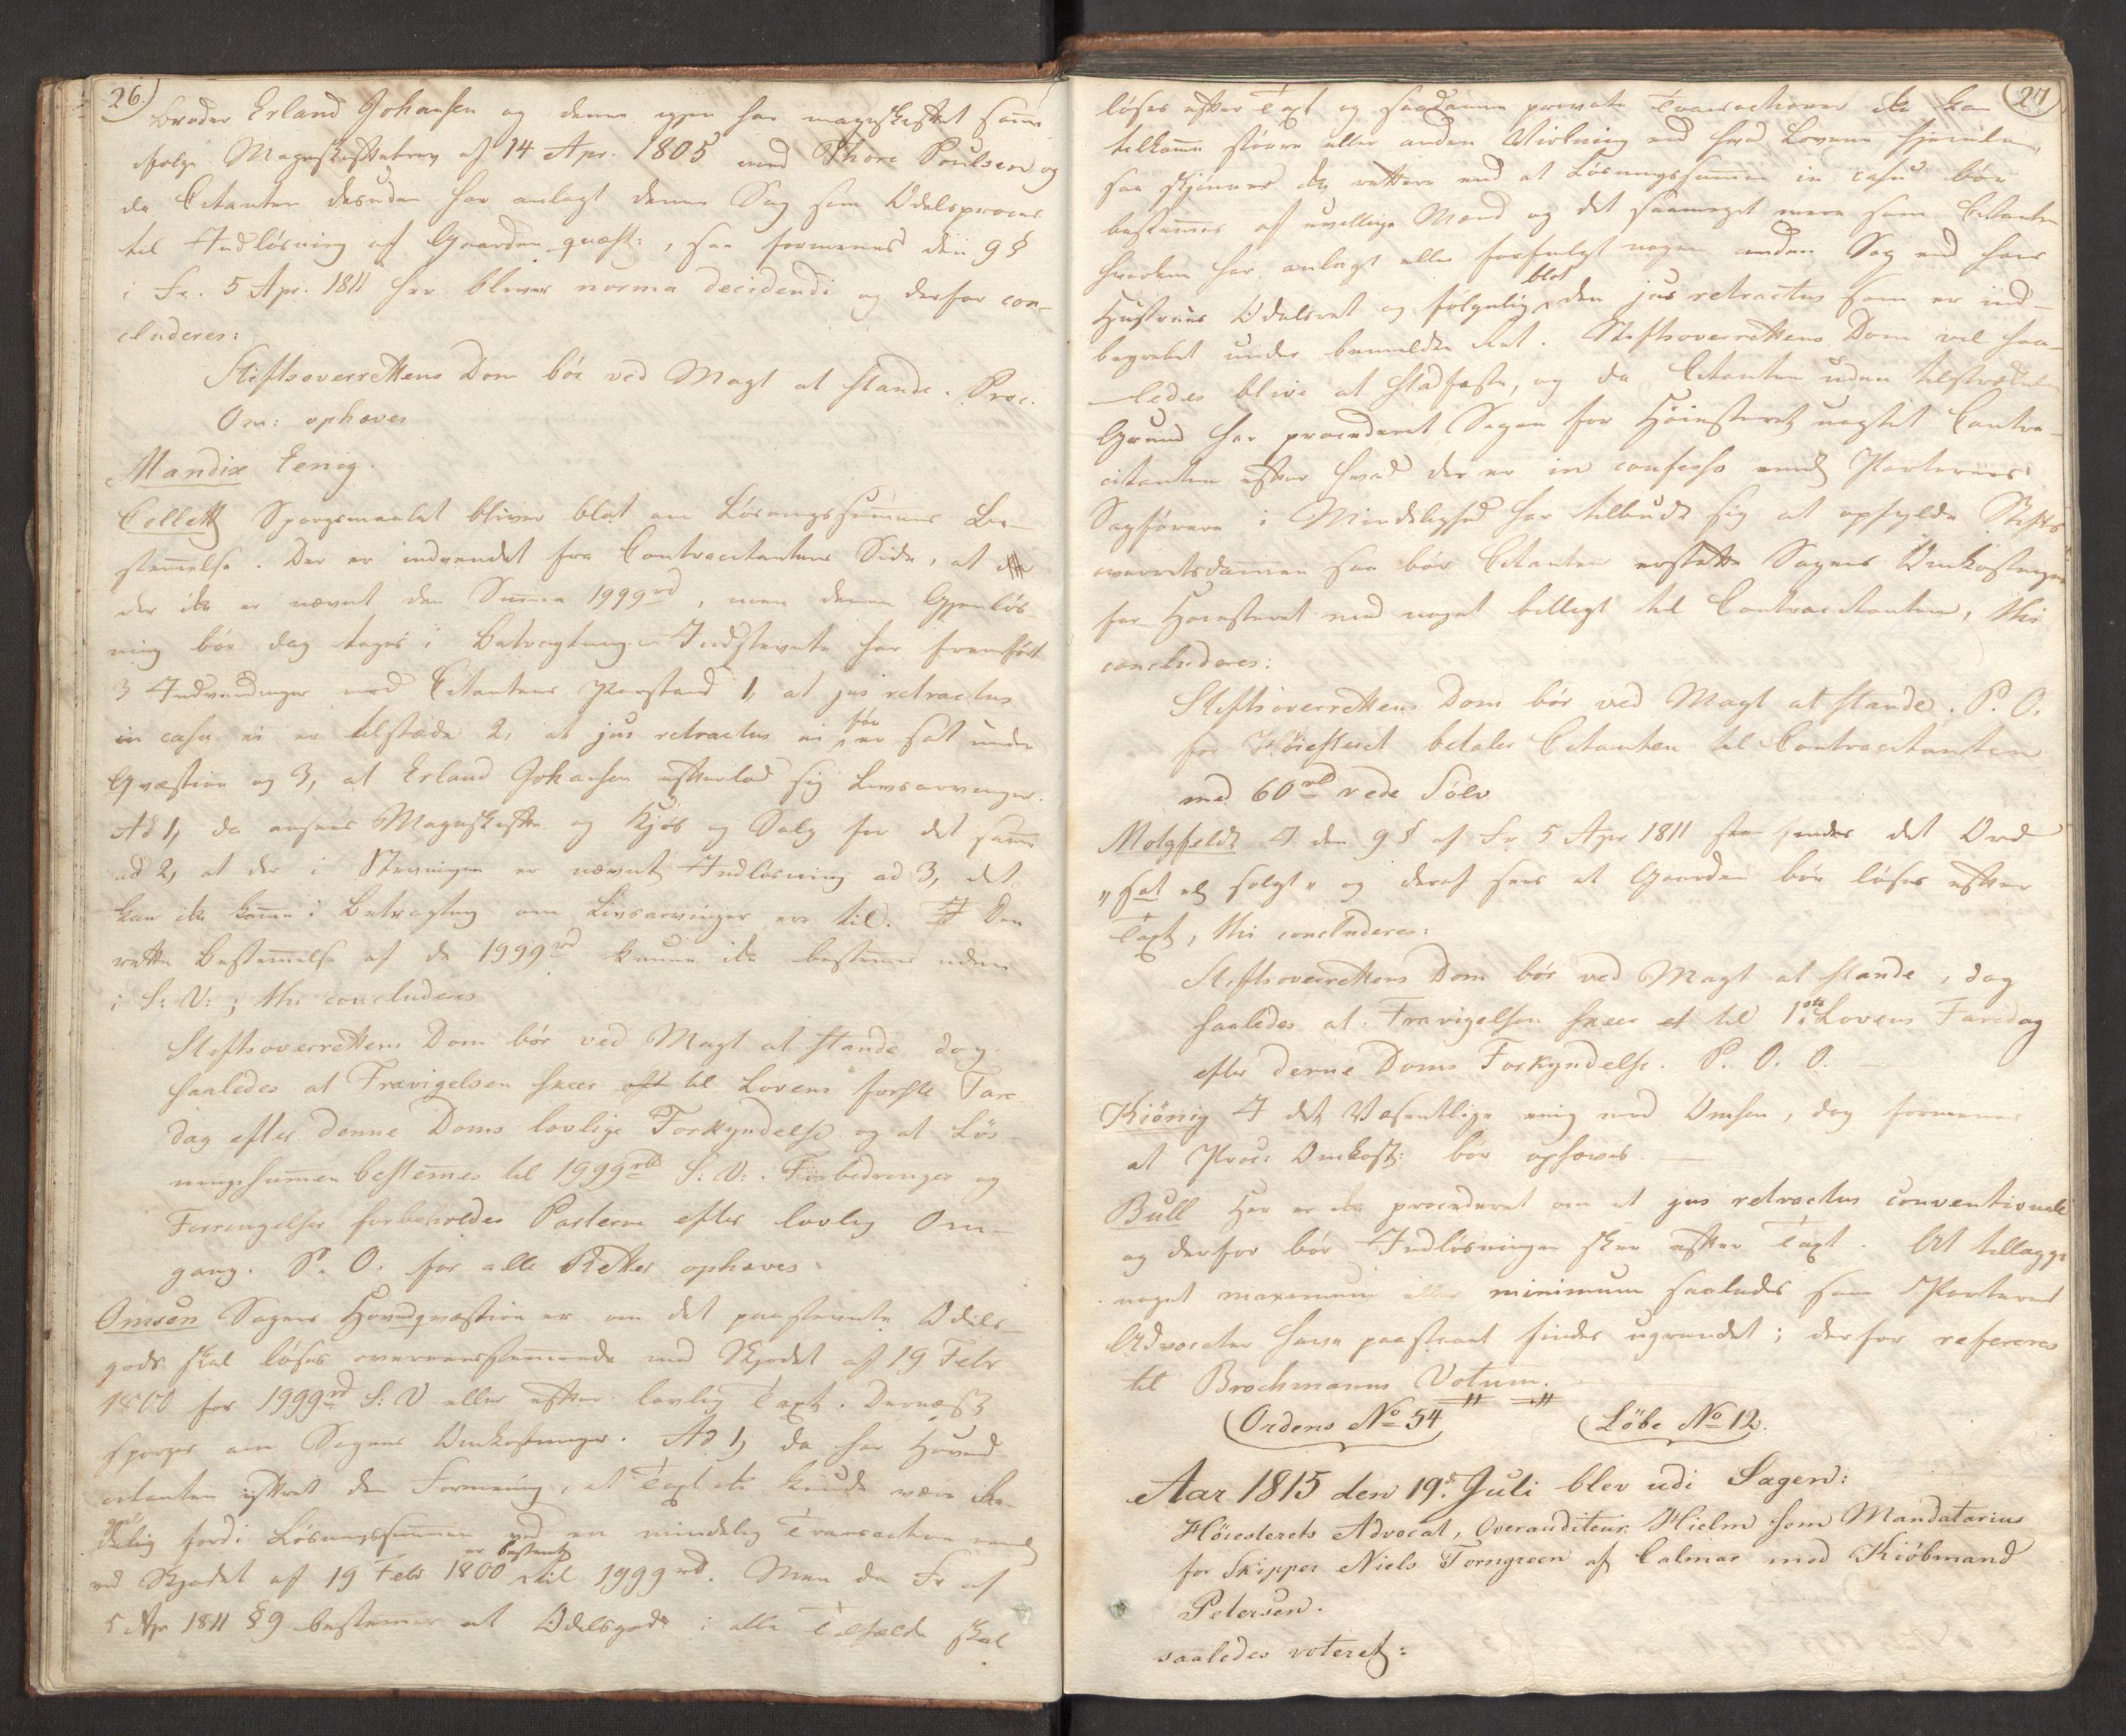 26.)
Broder Erland Johansen og denne igjen har mageskiftet samme
ifølge Mageskiftebrev af 14 Apr. 1805 med Thore Poulsen og
da Citanten desuden har anlagt denne Sag som Odelsproces
til Indløsning af Gaarden quæst:, saa formenes den 9 §
i Fr. 5 Apr. 1811 her bliver norma decidendi og derfor con-
cluderes:
Stiftsoverrettens Dom bør ved Magt at stande. Proc.
Om: ophæves
Mandix Eenig.
Collett Spørgsmaalet bliver blot om Løsningssummens Be-
stemmelse. Der er indvendt fra Contracitantens Side, at
der ikke er nævnt den Summa 1999 rd, men denne Gjenløs-
ning bør dog tages i Betragtning. Indstevnte har fremført
3 Indvendinger mod Citantens Paastand 1, at jus retractus
in casu ei er tilstæde 2, at jus retractus ei før er sat under
Qvæstion og 3, at Erland Johansen efterlod sig Livsarvinger.
Ad 1, da ansees Mageskifte og Kjøb og Salg for det samme
ad 2, at der i Stevningen er nævnt Indløsning ad 3, det
kan ikke komme i Betragtning om Livsarvinger ere til. Den
rette Bestemmelse af de 1999 rd kunne ikke bestemmes uden
i S: V: ; thi concluderes
Stiftsoverrettens Dom bør ved Magt at stande dog
saaledes at Fravigelsen skeer til Lovens første Fare-
dag efter denne Doms lovlige Forkyndelse og at Løs-
ningssummen bestemmes til 1999 rd S: V:. Forbedringer og
Forringelser forbeholdes Parterne efter lovlig Om-
gang. P. O. for alle Retter ophæves.
Omsen Sagens Hovedqvæstion er om det paastevnte Odels-
gods skal løses overeensstemmende med Skjødet af 19 Febr
1800 for 1999 rd S: V eller efter lovlig Taxt. Dernæst
spørges om Sagens Omkostninger. Ad 1, da har Hoved-
citanten yttret den Formening, at Taxt ikke kunde være
fordi Løsningssummen ved en mindelig Transaction nemlig
ved Skjødet af 19 Febr 1800 er bestemt til 1999 rd. Men da Fr af
5 Apr 1811 § 9 bestemmer at Odelsgods i alle Tilfælde skal
27
løses efter Taxt og saadanne private Transactioner ikke kan
tilkomme større eller anden Virkning end hvad Lovene hjemle,
saa skjønnes ikke rettere end at Løsningssummen in casu bør
bestemmes af uvillige Mænd og det saameget mere som Citanten
hverken har anlagt eller forfulgt nogen anden Sag end hans
Hustrues Odelsret og følgelig blot den jus retractus som er ind-
begrebet under bemeldte Ret. Stiftsoverrettens Dom vil saa-
ledes blive at stadfæste, og da Citanten uden tilstrækkelig
Grund har procederet Sagen for Høiesteret uagtet Contra-
citanten efter hvad der er in confesso imellem Parternes
Sagførere i Mindelighed har tilbudt sig at opfylde Stifts
overretsdommen saa bør Citanten erstatte Sagens Omkostninger
for Høiesteret med noget billigt til Contracitanten, thi
concluderes:
Stiftsoverrettens Dom bør ved Magt at stande. P. O.
for Høiesteret betaler Citanten til Contracitanten
med 60 rd rede Sølv
Motzfeldt I den 9 § af Fr 5 Apr 1811 findes det Ord
"sat og solgt" og deraf sees at Gaarden bør løses efter
Taxt, thi concluderes:
Stiftsoverrettens Dom bør ved Magt at stande, dog
saaledes at Fravigelsen skeer til 1ste Lovens Faredag
efter denne Doms Forkyndelse. P. O. O.
Kiönig I det Væsentlige enig med Omsen, dog formenes
at Proc: Omkost: bør ophæves
Bull Her er ikke procederet om et jus retractus conventionale
og derfor bør Indløsningen skee efter Taxt. At tillægge
noget maximum eller minimum saaledes som Parternes
Advocater have paastaaet findes ugrundet; derfor refereres
til Brochmanns Votum.
Ordens No 54 Löbe No 12.
Aar 1815 den 19de Juli blev udi Sagen:
Höiesterets Advocat, Overauditeur Hielm som Mandatarius
for Skipper Niels Torngreen af Calmar mod Kiöbmand
Petersen.
saaledes voteret: